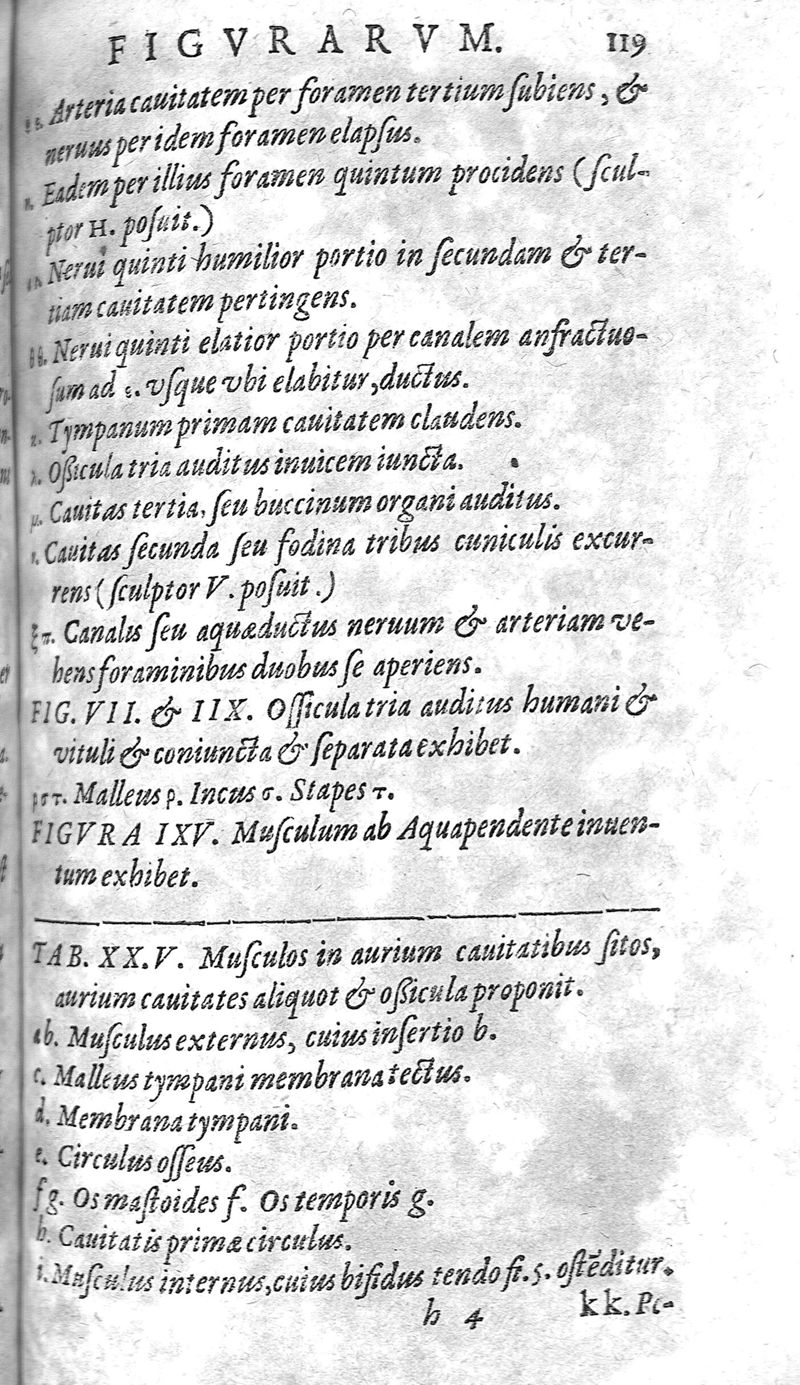 FIGVRARVM. 119
Arteria cauitatem per foramen tertium ſubiens, &
neruus per idem foramen elapſus.
Eadem per illius foramen quintum procidens (ſcul-
ptor H. poſuit.)
Nerui quinti humilior portio in ſecundam & ter-
tiam cauitatem pertingens.
θθ. Nerui quinti elatior portio per canalem anfractuo-
ſum ad ς. vſque vbi elabitur, ductus.
κ. Tympanum primam cauitatem claudens.
λ. Oſsicula tria auditus inuicem iuncta.
μ. Cauitas tertia, ſeu buccinum organi auditus.
ν. Cauitas ſecunda ſeu fodina tribus cuniculis excur-
rens (ſculptor V. poſuit.)
ξπ. Canalis ſeu aquæductus neruum & arteriam ve-
hens foraminibus duobus ſe aperiens.
FIG. VII. & IIX. Oſſicula tria auditus humani &
vituli & coniuncta & ſeparata exhibet.
ρστ. Malleus ρ. Incus σ. Stapes τ.
FIGVRA IXV. Muſculum ab Aquapendente inuen-
tum exhibet.
TAB. XX.V. Muſculos in aurium cauitatibus ſitos,
aurium cauitates aliquot & oſsicula proponit.
ab. Muſculus externus, cuius inſertio b.
c. Malleus tympani membrana tectus.
d. Membrana tympani.
e. Circulus oſſeus.
fg. Os maſtoides f. Os temporis g.
h. Cauitatis primæ circulus.
i. Muſculus internus, cuius bifidus tendo fi. 5. oſtēditur.
h 4 kk. Pe-